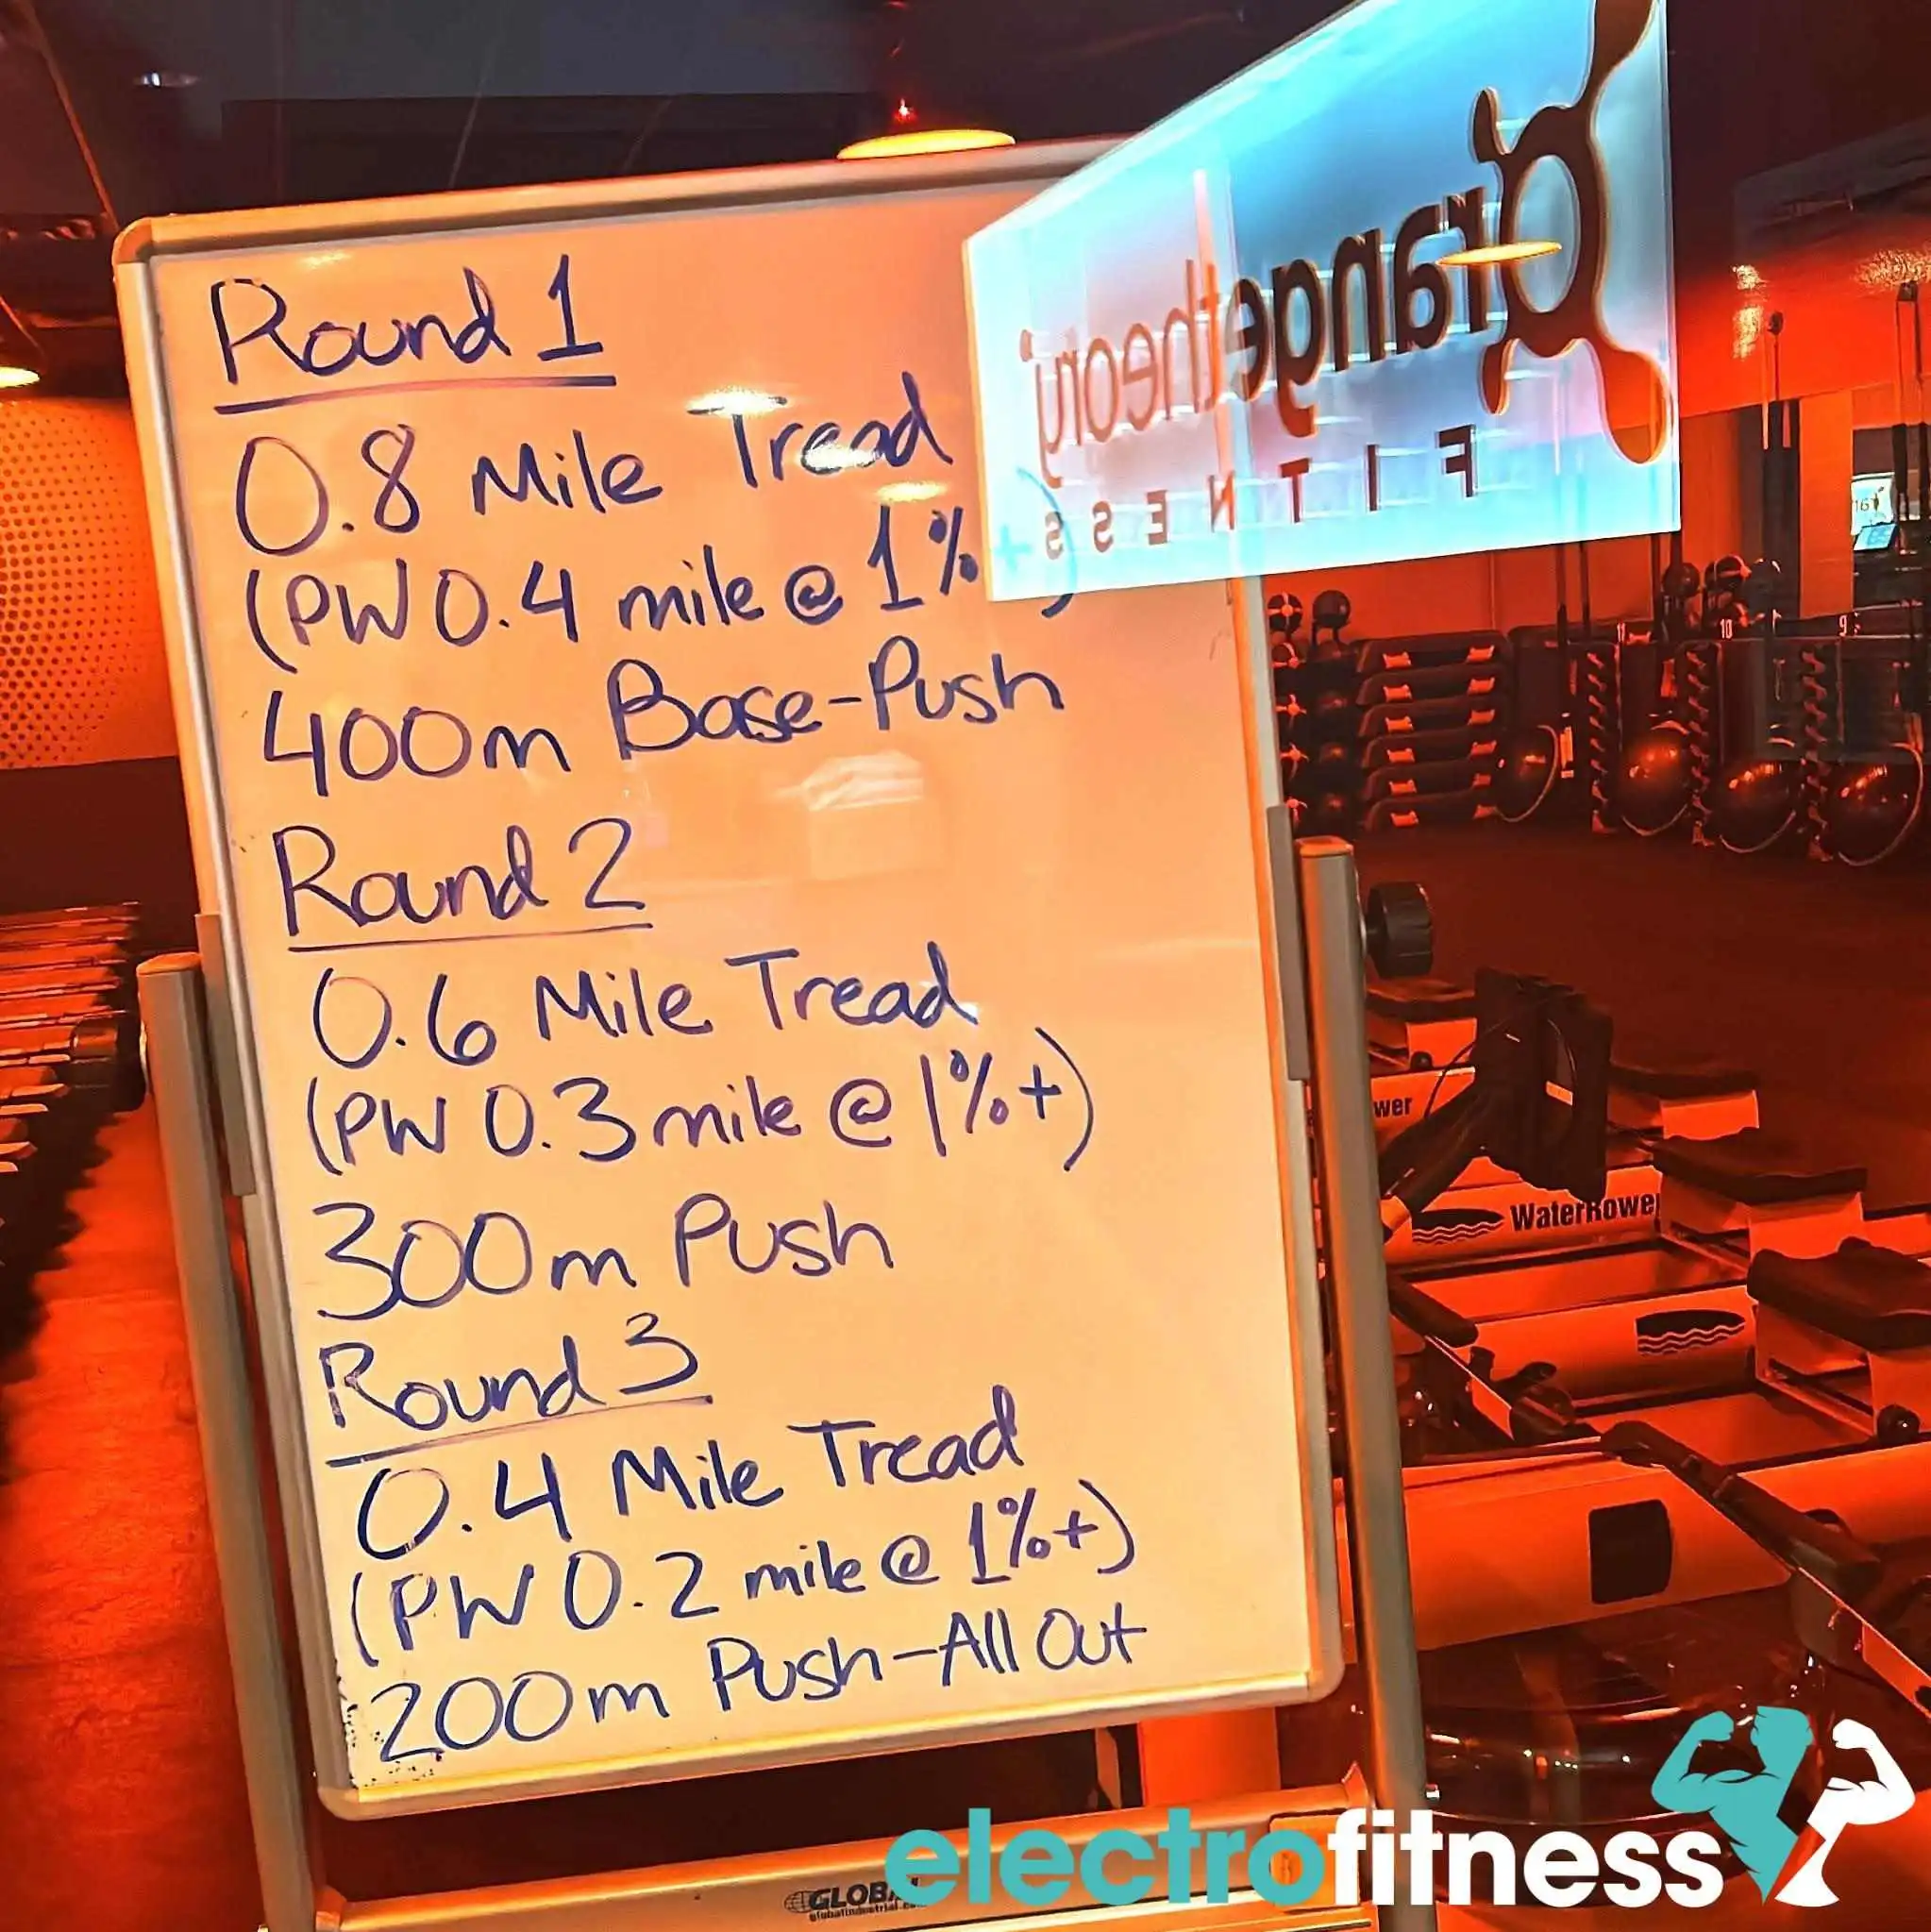 Round 1
0.8 Mile Tread
(PW 0.4 mile @ 1% +)
400m Base-Push
Round 2
0.6 Mile Tread
(PW 0.3 mile @ 1%+)
300m Push
Round 3
0.4 Mile Tread
(PW 0.2 mile @ 1%+)
200m Push-All Out
orangetheory
FITNESS
11
10
9
wer
WaterRower
GLOBAL
globalindustrial.co
electrofitness